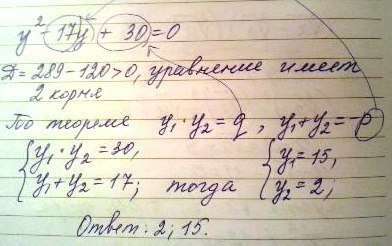 y² - 17y + 30 = 0
D = 289 - 120 > 0, уравнение имеет
2 корня
По теореме y₁ · y₂ = q, y₁ + y₂ = -p
{ y₁ · y₂ = 30, { y₁ = 15,
y₁ + y₂ = 17; тогда y₂ = 2,
Ответ: 2; 15.